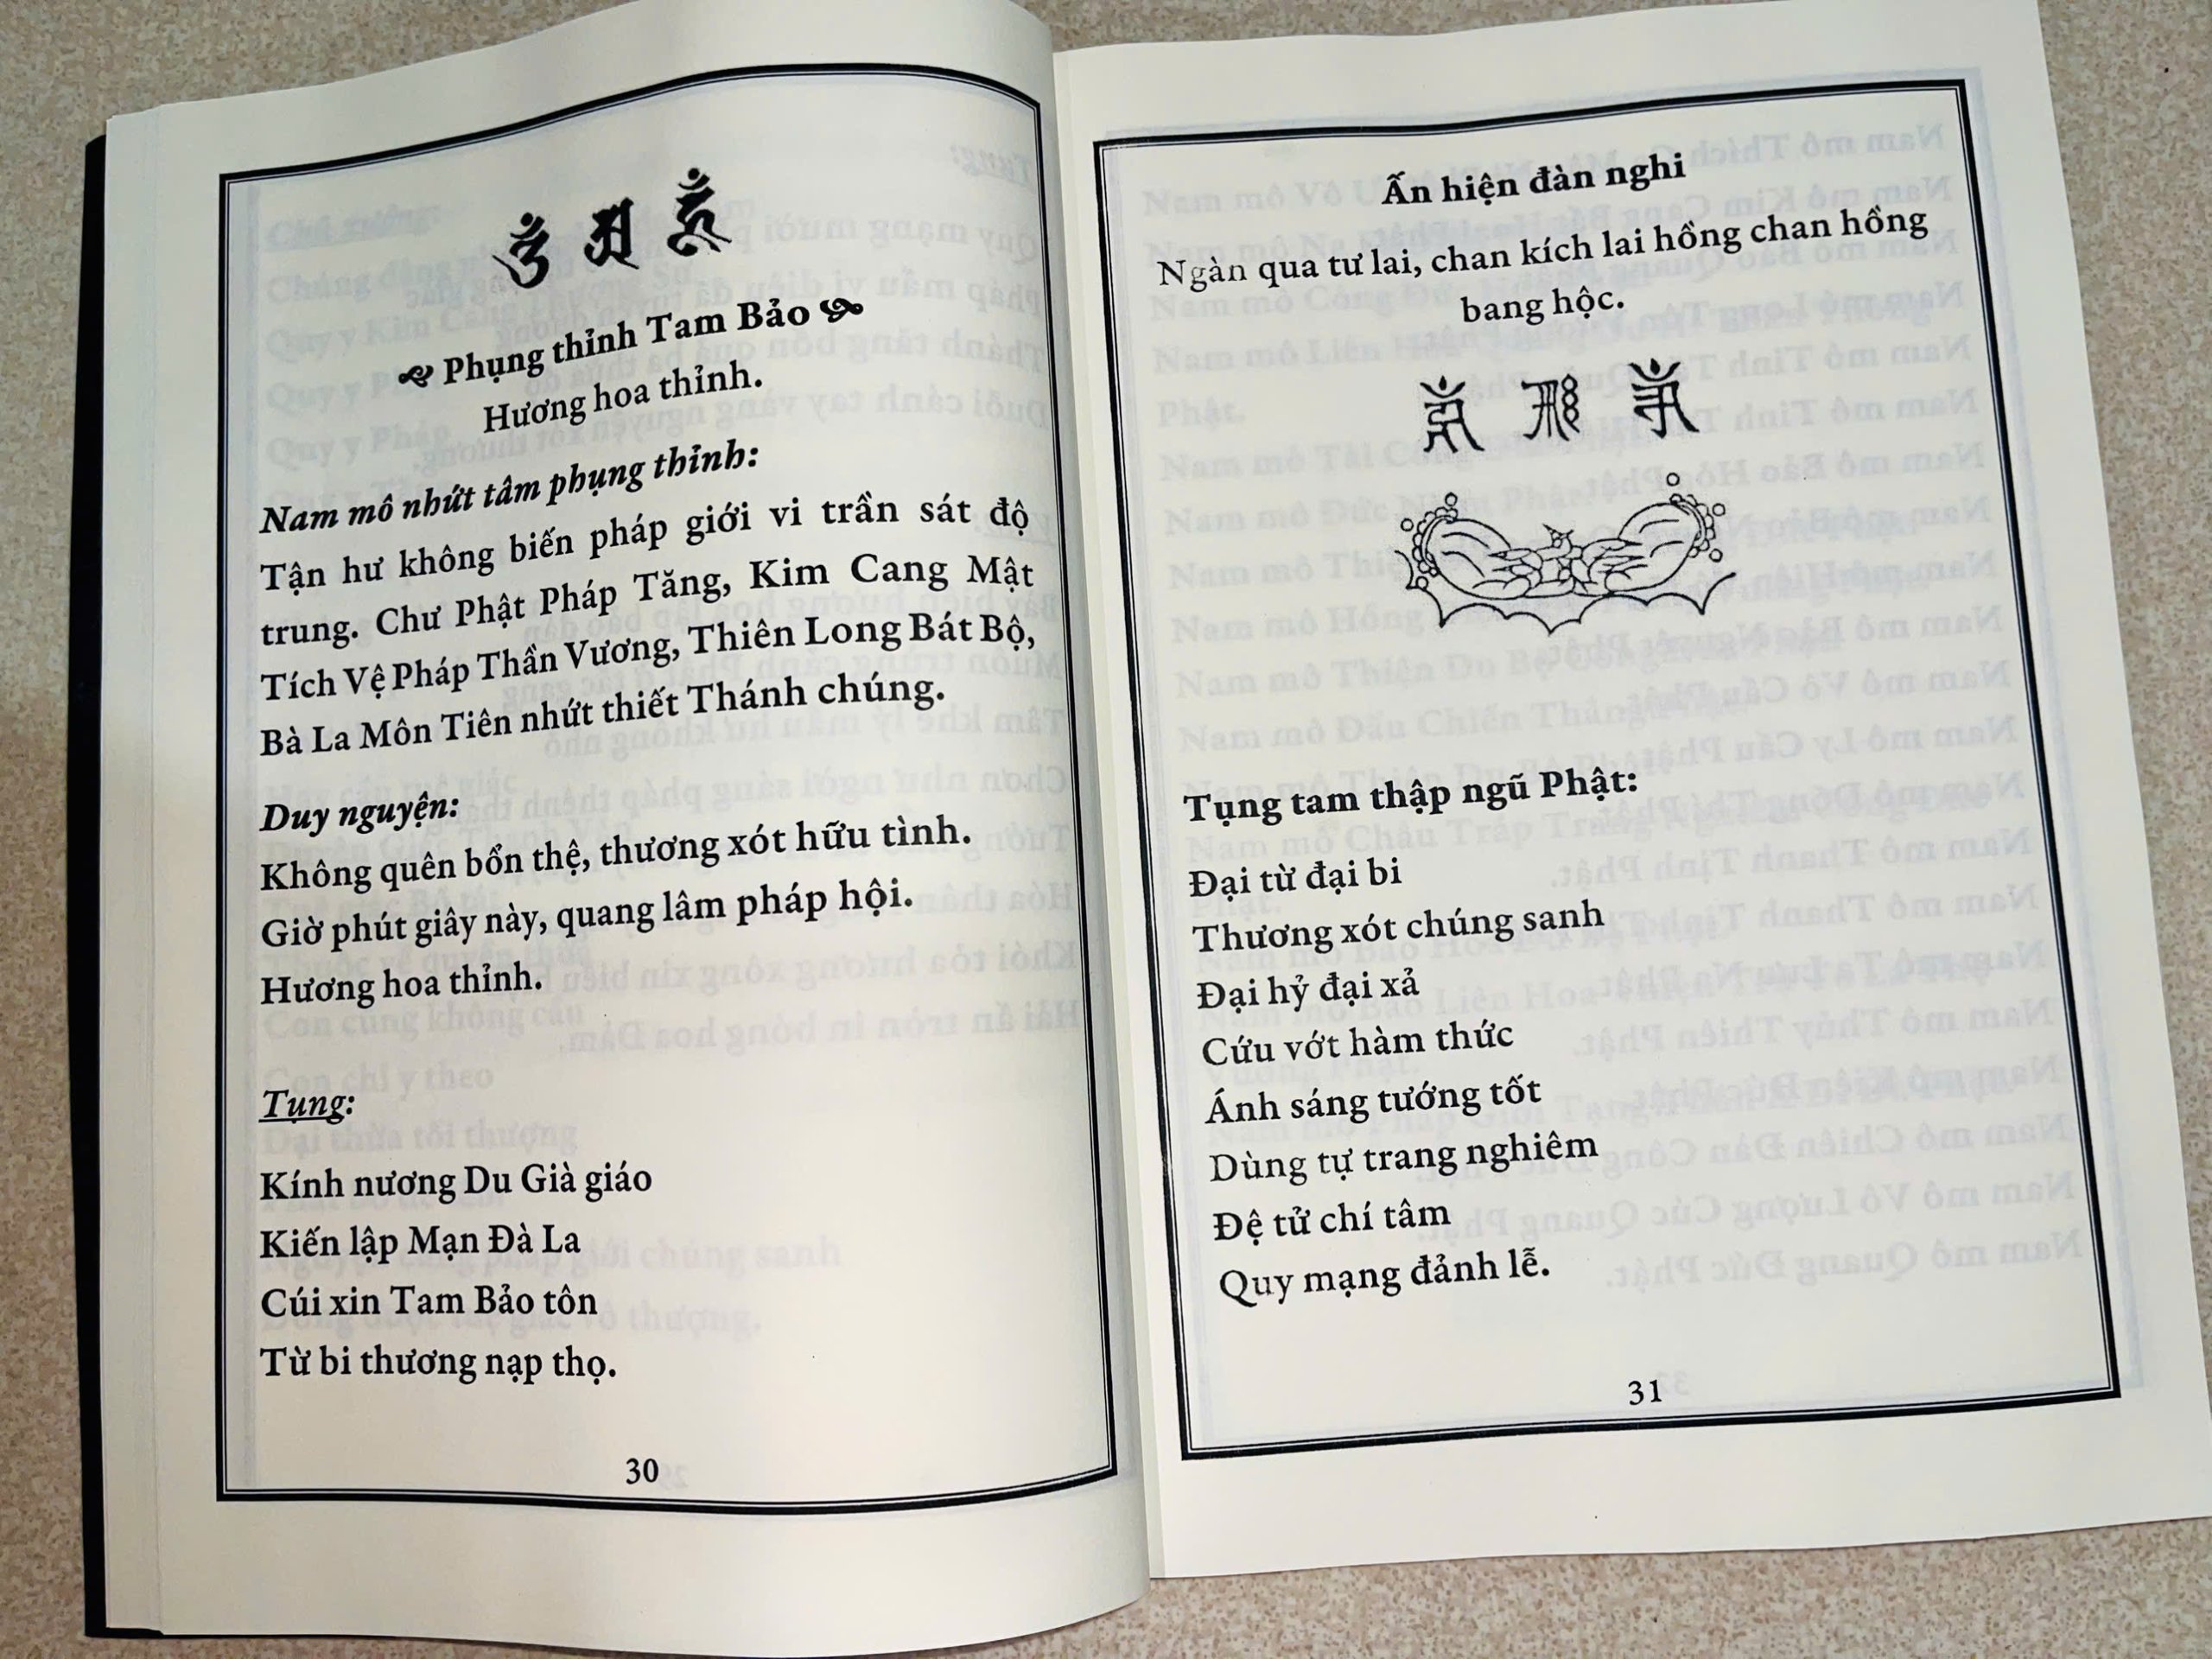 Phụng thỉnh Tam Bảo
Hương hoa thỉnh.
Nam mô nhứt tâm phụng thỉnh:
Tận hư không biến pháp giới vi trần sát độ
trung. Chư Phật Pháp Tăng, Kim Cang Mật
Tích Vệ Pháp Thần Vương, Thiên Long Bát Bộ,
Bà La Môn Tiên nhứt thiết Thánh chúng.
Duy nguyện:
Không quên bổn thệ, thương xót hữu tình.
Giờ phút giây này, quang lâm pháp hội.
Hương hoa thỉnh.
Tụng:
Kính nương Du Già giáo
Kiến lập Mạn Đà La
Cúi xin Tam Bảo tôn
Từ bi thương nạp thọ.
30
Ấn hiện đàn nghi
Ngàn qua tư lai, chan kích lai hồng chan hồng
bang hộc.
Tụng tam thập ngũ Phật:
Đại từ đại bi
Thương xót chúng sanh
Đại hỷ đại xả
Cứu vớt hàm thức
Ánh sáng tướng tốt
Dùng tự trang nghiêm
Đệ tử chí tâm
Quy mạng đảnh lễ.
31